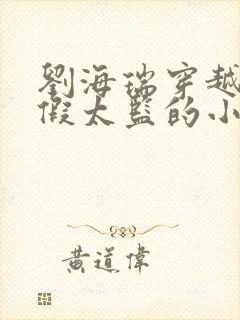 劉海瑞穿越
假太監的小
黃道偉